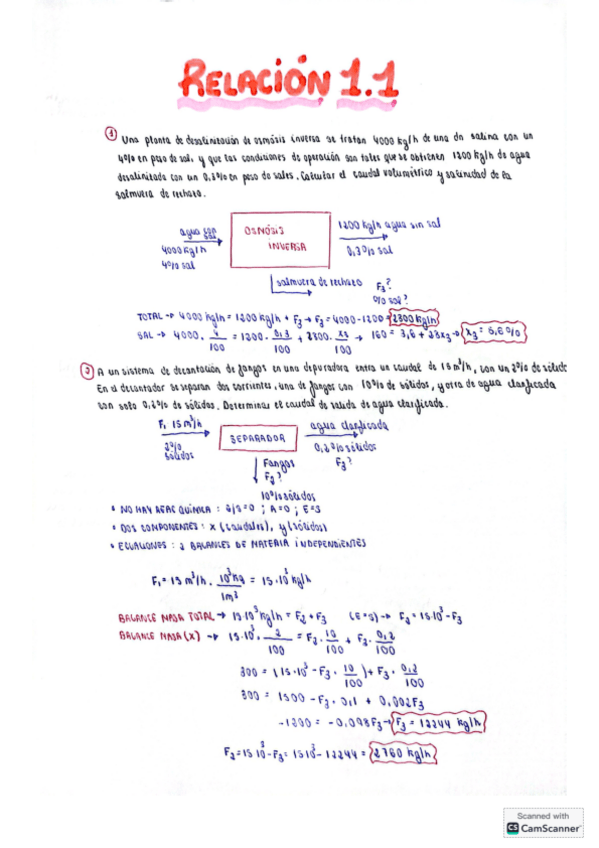 RELACIÓN 1.1
① Una planta de desalinización de osmósis inversa se tratan 4000 kg/h de una dn salina con un
4% en peso de sal, y que las condiciones de operación son tales que se obtienen 1200 kg/h de agua
desalinizada con un 0,3% en peso de sales. Calcular el caudal volumétrico y salinidad de la
salmuera de rechazo.
agua con sal
4000 kg/h
4% sal
OSMÓSIS
INVERSA
1200 kg/h agua sin sal
0,3% sal
salmuera de rechazo F3?
% sal?
TOTAL → 4000 kg/h = 1200 kg/h + F3 → F3 = 4000-1200 = 2800 kg/h
SAL → 4000 · 4/100 = 1200 · 0,3/100 + 2800 · x3/100 → 160 = 3,6 + 28x3 → x3 = 5,6%
② A un sistema de decantación de fangos en una depuradora entra un caudal de 15 m³/h, con un 2% de sólidos
En el decantador se separan dos corrientes, una de fangos con 10% de sólidos, y otra de agua clarificada
con solo 0,2% de sólidos. Determinar el caudal de salida de agua clarificada.
F1 15 m³/h
2%
sólidos
SEPARADOR
agua clarificada
0,2% sólidos
F3?
Fangos
F2?
10% sólidos
• NO HAY REAC QUÍMICA : G/S=0 ; A=0 ; E=S
• DOS COMPONENTES : x (caudales), y (sólidos)
• ECUACIONES : 2 BALANCES DE MATERIA INDEPENDIENTES
F1 = 15 m³/h · 10³ kg/1m³ = 15·10³ kg/h
BALANCE MASA TOTAL → 15·10³ kg/h = F2 + F3 (E=S) → F2 = 15·10³ - F3
BALANCE MASA (X) → 15·10³ · 2/100 = F2 · 10/100 + F3 · 0,2/100
300 = (15·10³ - F3 · 10/100) + F3 · 0,2/100
300 = 1500 - F3 · 0,1 + 0,002F3
-1200 = -0,098F3 → F3 = 12244 kg/h
F2 = 15·10³ - F3 = 15·10³ - 12244 = 2760 kg/h
Scanned with
CS CamScanner